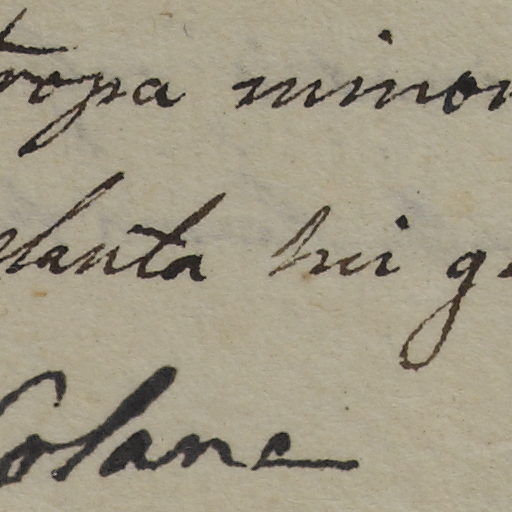 tropa minor
planta hui g
Solane